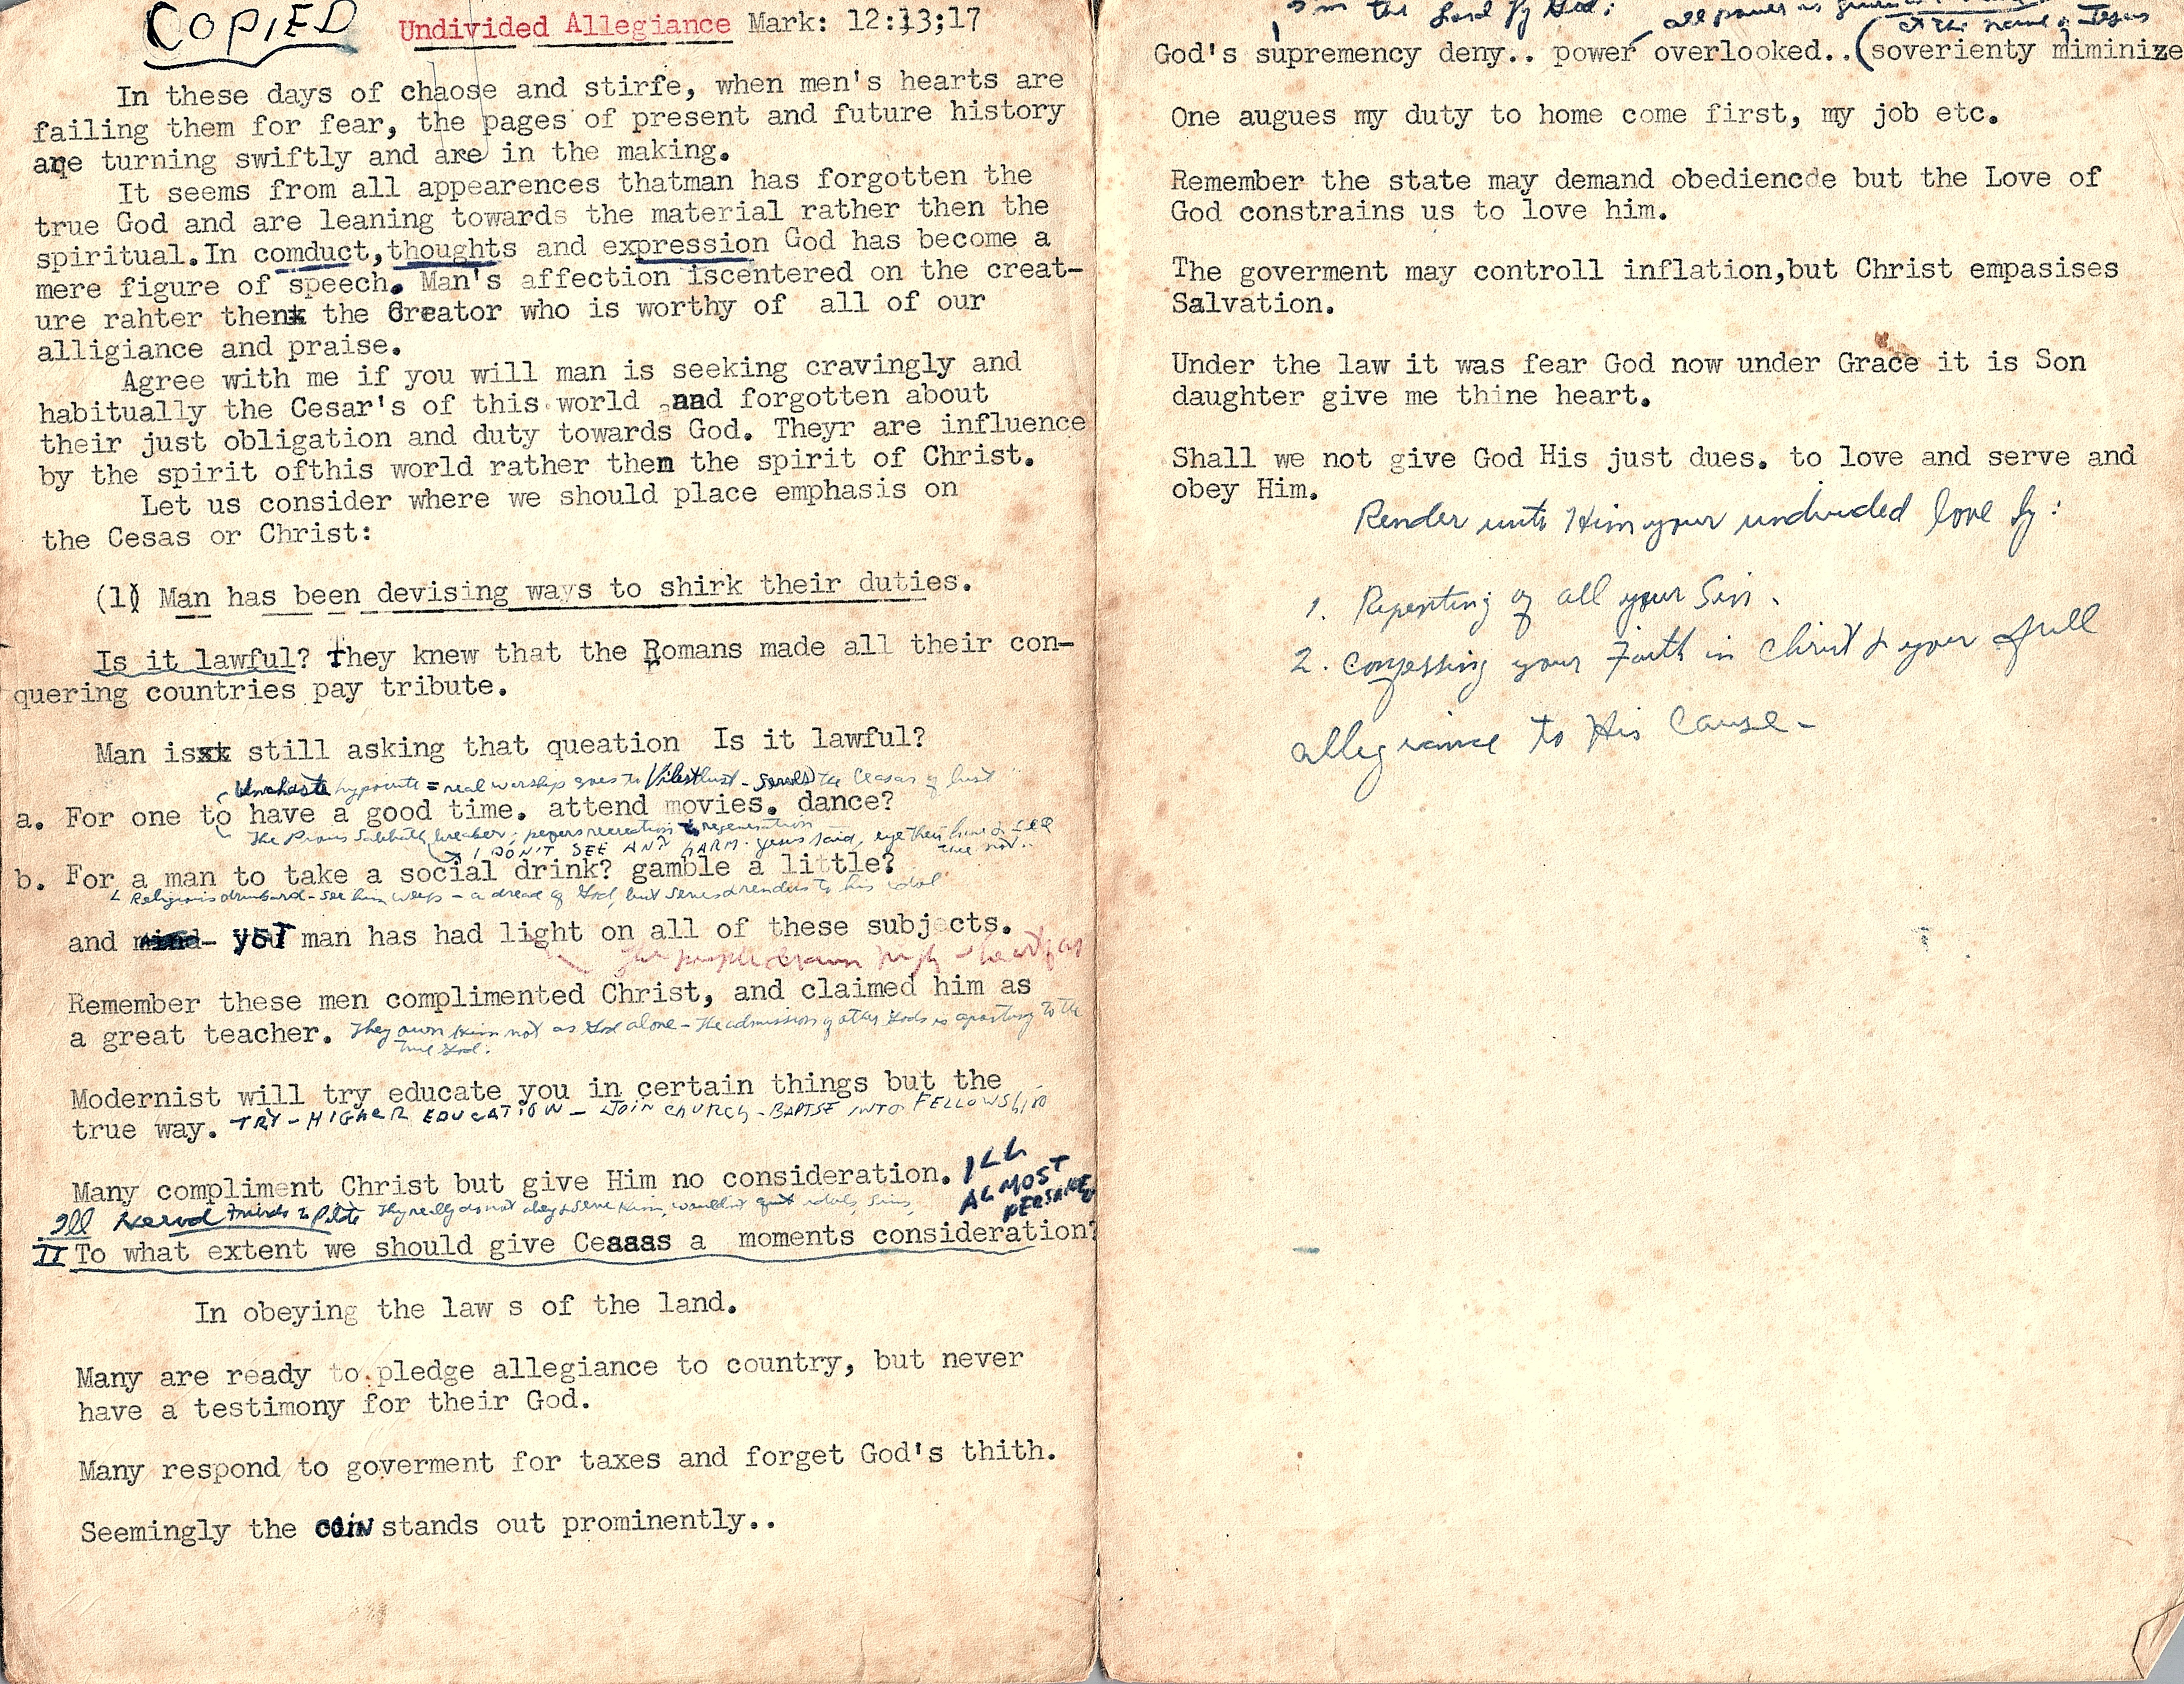 COPIED
Undivided Allegiance Mark: 12:13;17
In these days of chaose and stirfe, when men's hearts are
failing them for fear, the pages of present and future history
are turning swiftly and are in the making.
It seems from all appearences thatman has forgotten the
true God and are leaning towards the material rather then the
spiritual.In comduct,thoughts and expression God has become a
mere figure of speech. Man's affection iscentered on the creat-
ure rahter then the Creator who is worthy of all of our
alligiance and praise.
Agree with me if you will man is seeking cravingly and
habitually the Cesar's of this world and forgotten about
their just obligation and duty towards God. Theyr are influence
by the spirit ofthis world rather then the spirit of Christ.
Let us consider where we should place emphasis on
the Cesas or Christ:
(1) Man has been devising ways to shirk their duties.
Is it lawful? They knew that the Romans made all their con-
quering countries pay tribute.
Man is still asking that queation Is it lawful?
Unchaste hypocrite = real worship goes to Vilest lust - serves the Ceasar of lust
a. For one to have a good time. attend movies. dance?
The Pious Sabbath breaker; recreation to regeneration
I DON'T SEE ANY HARM. Jesus said, eye they have &
see not..
b. For a man to take a social drink? gamble a little?
Religious drunkard - see him weep - a dread of God, but serves & renders to his idol
and yet man has had light on all of these subjects.
The people
Remember these men complimented Christ, and claimed him as
a great teacher. They own Him not as God alone - The admission of other Gods is apostasy to the
true God.
Modernist will try educate you in certain things but the
true way. TRY - HIGHER EDUCATION - JOIN CHURCH - BAPTISE INTO FELLOWSHIP
Many compliment Christ but give Him no consideration. ILL
ALMOST
PERSUADED
Ill Herod Friends to Pilate They really do not obey & serve Him, wouldn't quit idols, sins,
II To what extent we should give Ceaaas a moments consideration?
In obeying the law s of the land.
Many are ready to pledge allegiance to country, but never
have a testimony for their God.
Many respond to goverment for taxes and forget God's thith.
Seemingly the coin stands out prominently..
I'm the Lord thy God: all power is given
at the name of Jesus
God's supremency deny.. power overlooked..(soverienty miminize
One augues my duty to home come first, my job etc.
Remember the state may demand obediencde but the Love of
God constrains us to love him.
The goverment may controll inflation,but Christ empasises
Salvation.
Under the law it was fear God now under Grace it is Son
daughter give me thine heart.
Shall we not give God His just dues. to love and serve and
obey Him.
Render unto Him your undivided love by:
1. Repenting of all your Sin.
2. Confessing your Faith in Christ & your full
allegiance to His Cause-